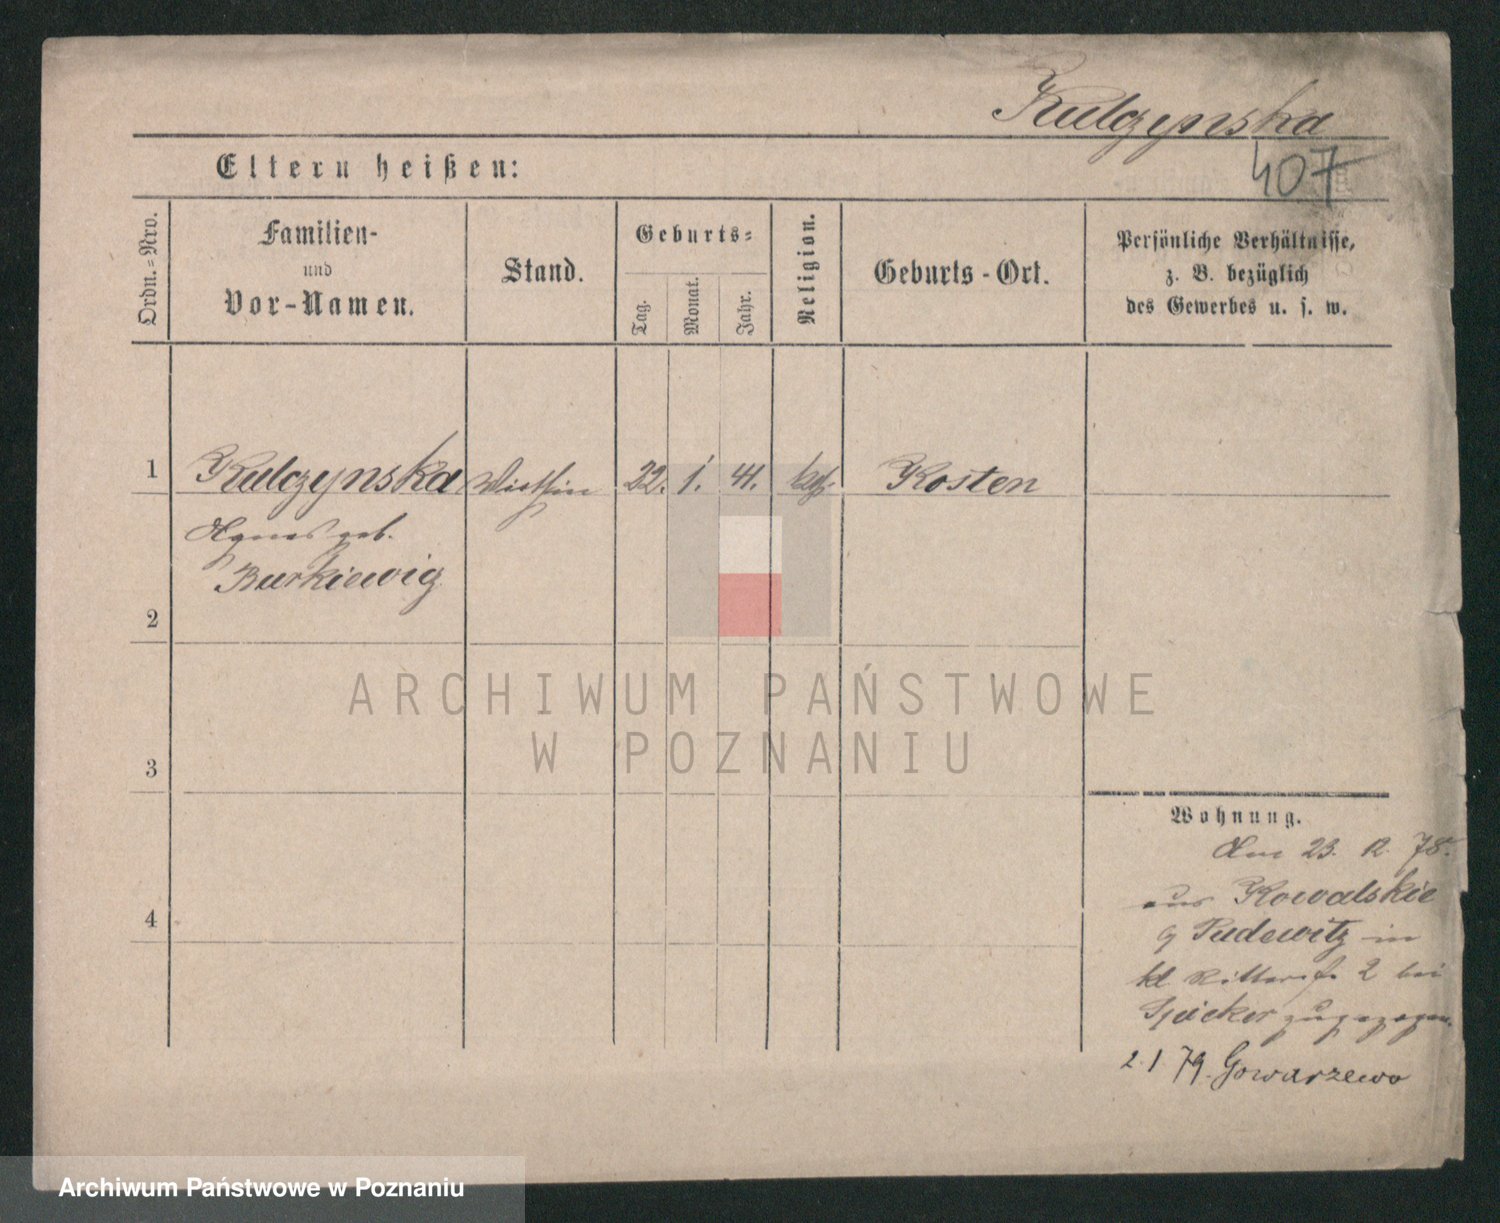 Kulczynska
407
Eltern heißen:
Ordn.=Nro.
Familien-
und
Vor-Namen.
Stand.
Geburts=
Tag.
Monat.
Jahr.
Religion.
Geburts-Ort.
Persönliche Verhältnisse,
z. B. bezüglich
des Gewerbes u. s. w.
1 Kulczynska 22. 1. 41. kath. Kosten
Agnes geb.
Burkiewicz
2
3
4
Wohnung.
Am 23. 12. 78.
aus Kowalskie
Pudewitz in
kl Ritterstr 2 bei
zugezogen.
2. 1. 79. Gowarzewo
ARCHIWUM PAŃSTWOWE
W POZNANIU
Archiwum Państwowe w Poznaniu